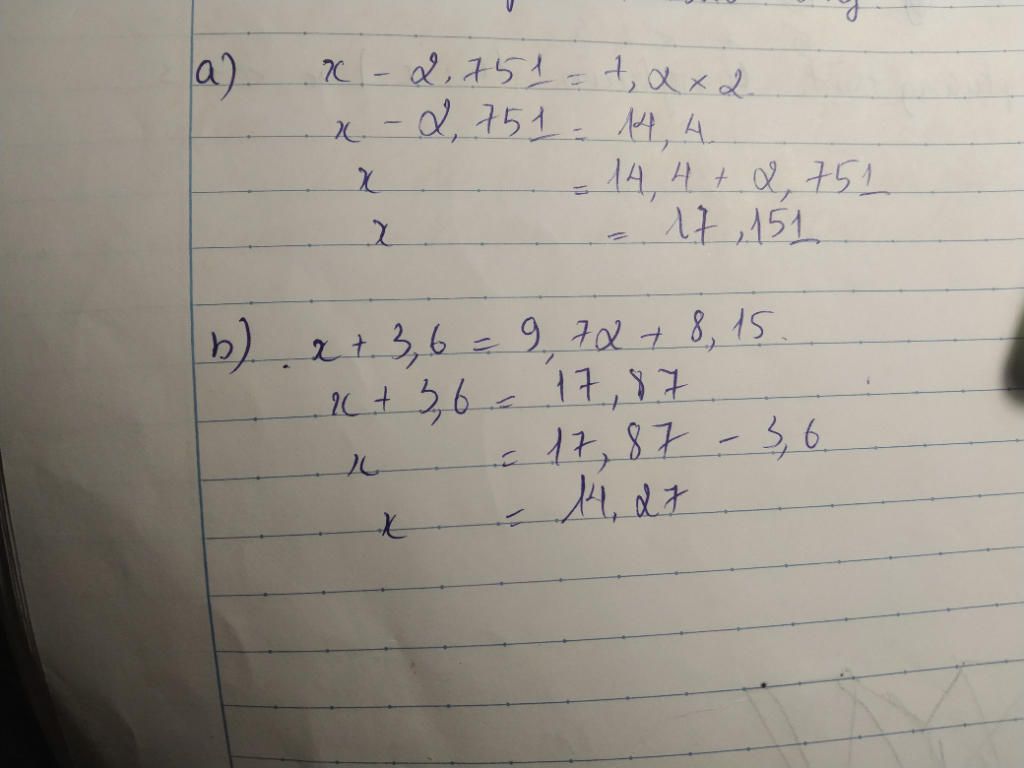 a) x - 2,751 = 7,2 × 2
x - 2,751 = 14,4
x = 14,4 + 2,751
x = 17,151
b) x + 3,6 = 9,72 + 8,15.
x + 3,6 = 17,87
x = 17,87 - 3,6
x = 14,27